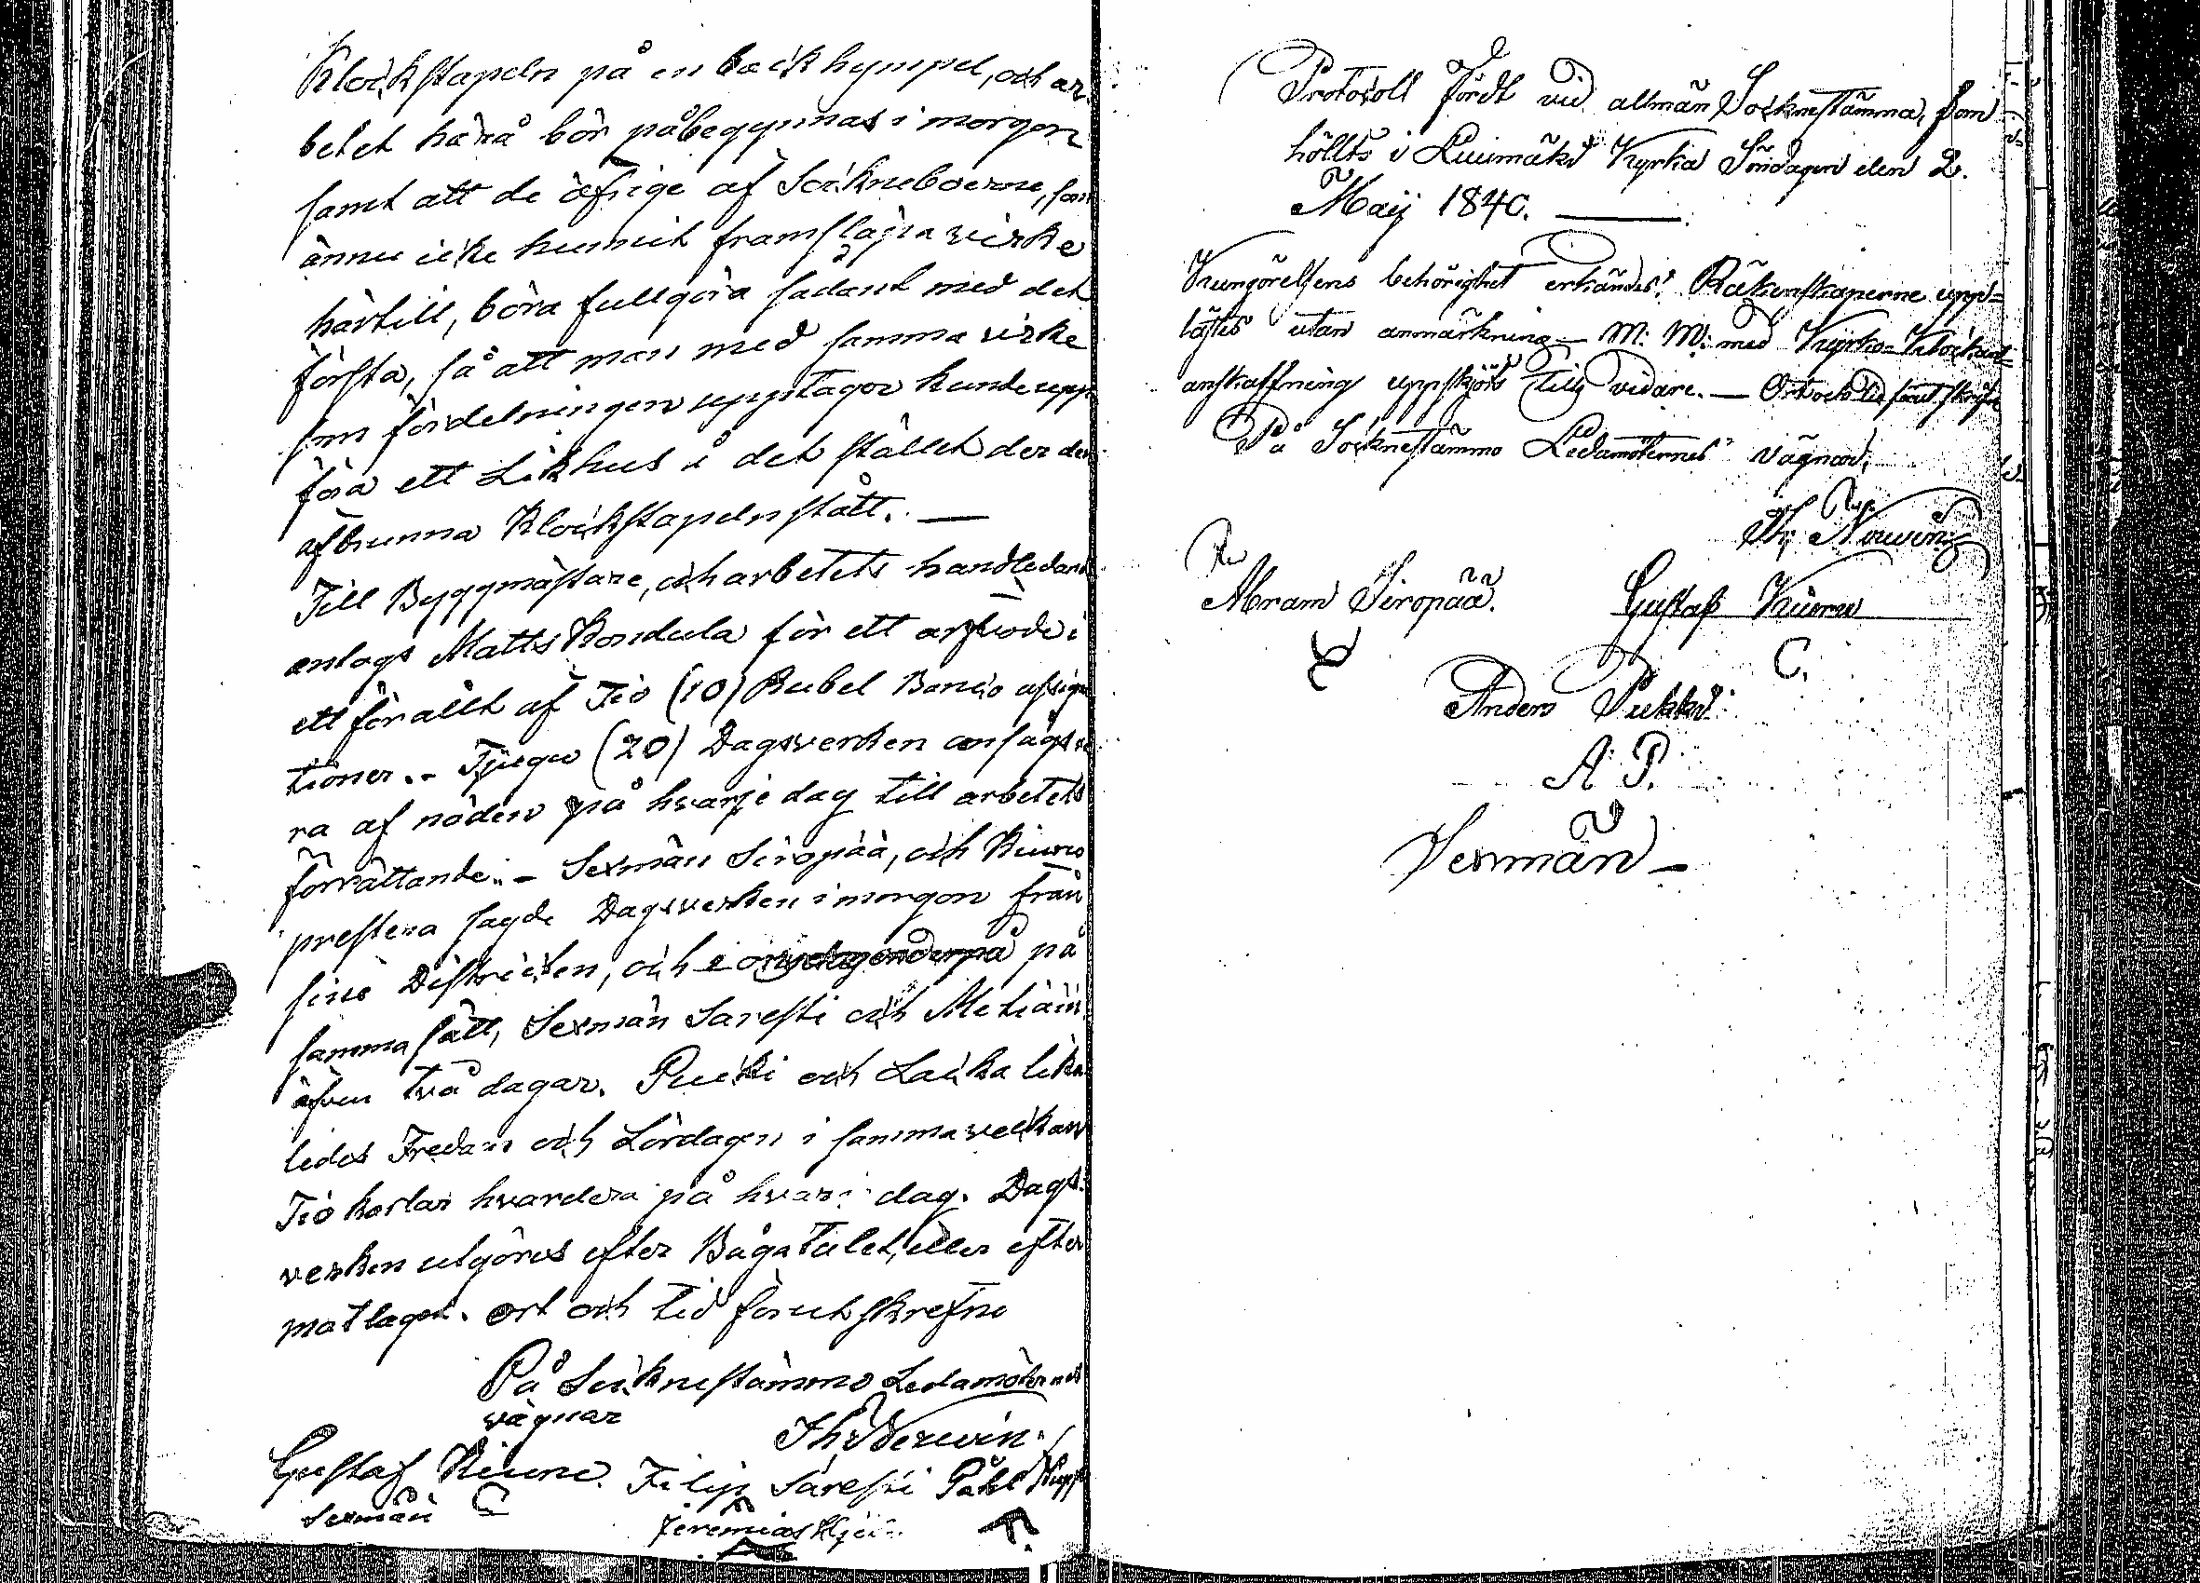 Klockstapeln på en backhympel, och ar
betet härå bör påbegynnas i morgon
samt att de öfrige af Sockneboerne, som
ännu icke hunnit framsläpa virke
härtill, böra fullgöra sådant med det
första, så att man med samma virke
som fördelningen upptager kunde upp
föra ett Likhus å det stället der den
afbrunna Klockstapeln stått. —
Till Byggmästare, och arbetets handledare
antogs Matts Kondula för ett arfvode i
ett för allt af Tio (10) Rubel Banco assigna
tioner. - Tjugu (20) Dagsverken ansågs va
ra af nöden på hvarje dag till arbetets
förrättande. - Sexmän Siropää, och Kiuru
prestera sagde Dagsverken i morgon från
sine Districten, och i öfvermorgon på
samma sätt, Sexmän Saresti och Metiäin
äfven två dagar. Pucki och Lacka lika
ledes Fredan och Lördagen i samma veckan
Tio karlar hvardera på hvar dag. Dags-
verken utgöres efter Bågatalet, eller efter
matlaget. ort och tid förutskrefne
På Socknestämmo Ledamöternes
vägnar
Th Nerwin.
Gustaf Kiuru. Filip Saresti Påhl
Sexmän C
Jeremias
Protocoll Fördt vid allmän Socknestämma, som
höllts i Luumäki Kyrka Söndagen den 2.
Maij 1840. —
Kungörelsens behörighet erkändes. Räkenskaperne upp=
lästes utan anmärkning — M. M. med Kyrko-Klockans
anskaffning uppskjöts till vidare. — Ort och tid förutskrifne
På Socknestämmo Ledamöternes vägnar,
Th Nerwin
Abram Siropää. Gustaf Kiuru
C.
Anders Pukki
A P.
Sexmän —